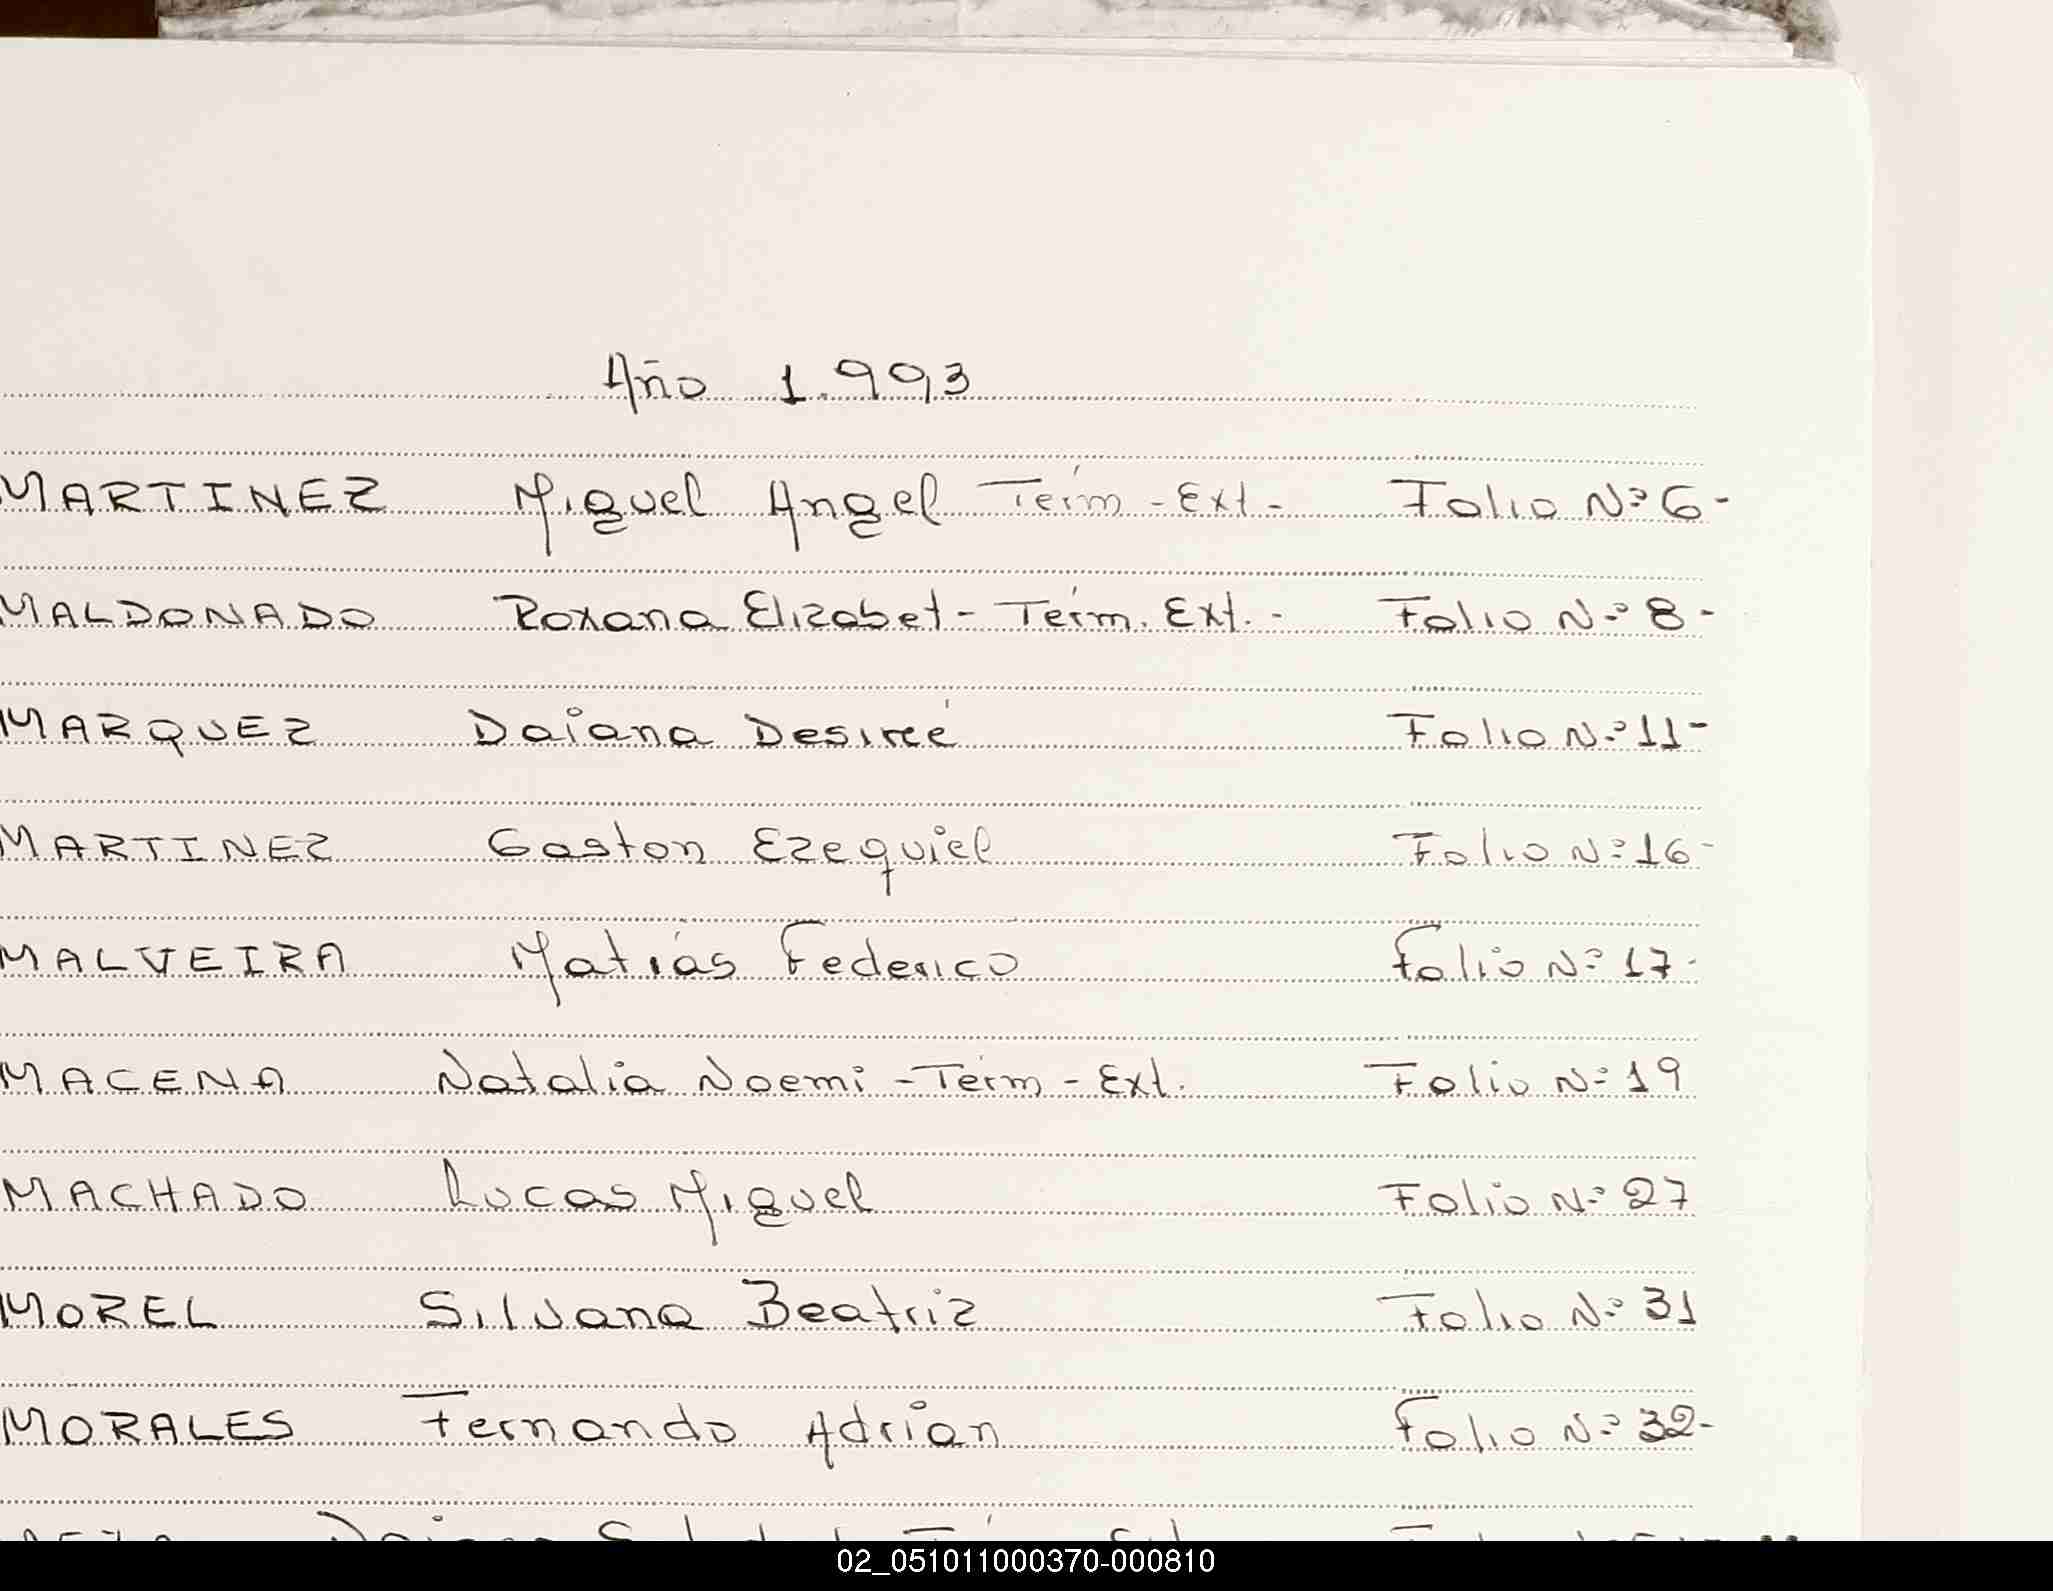 Año 1.993
MARTINEZ Miguel Angel Térm - Ext. - Folio Nº 6 -
MALDONADO Roxana Elizabet - Térm. Ext. - Folio Nº 8 -
MARQUEZ Daiana Desireé Folio Nº 11 -
MARTINEZ Gaston Ezequiel Folio Nº 16 -
MALVEIRA Matías Federico Folio Nº 17 -
MACENA Natalia Noemi - Térm - Ext. Folio Nº 19
MACHADO Lucas Miguel Folio Nº 27
MOREL Silvana Beatriz Folio Nº 31
MORALES Fernando Adrian Folio Nº 32 -
02_051011000370-000810